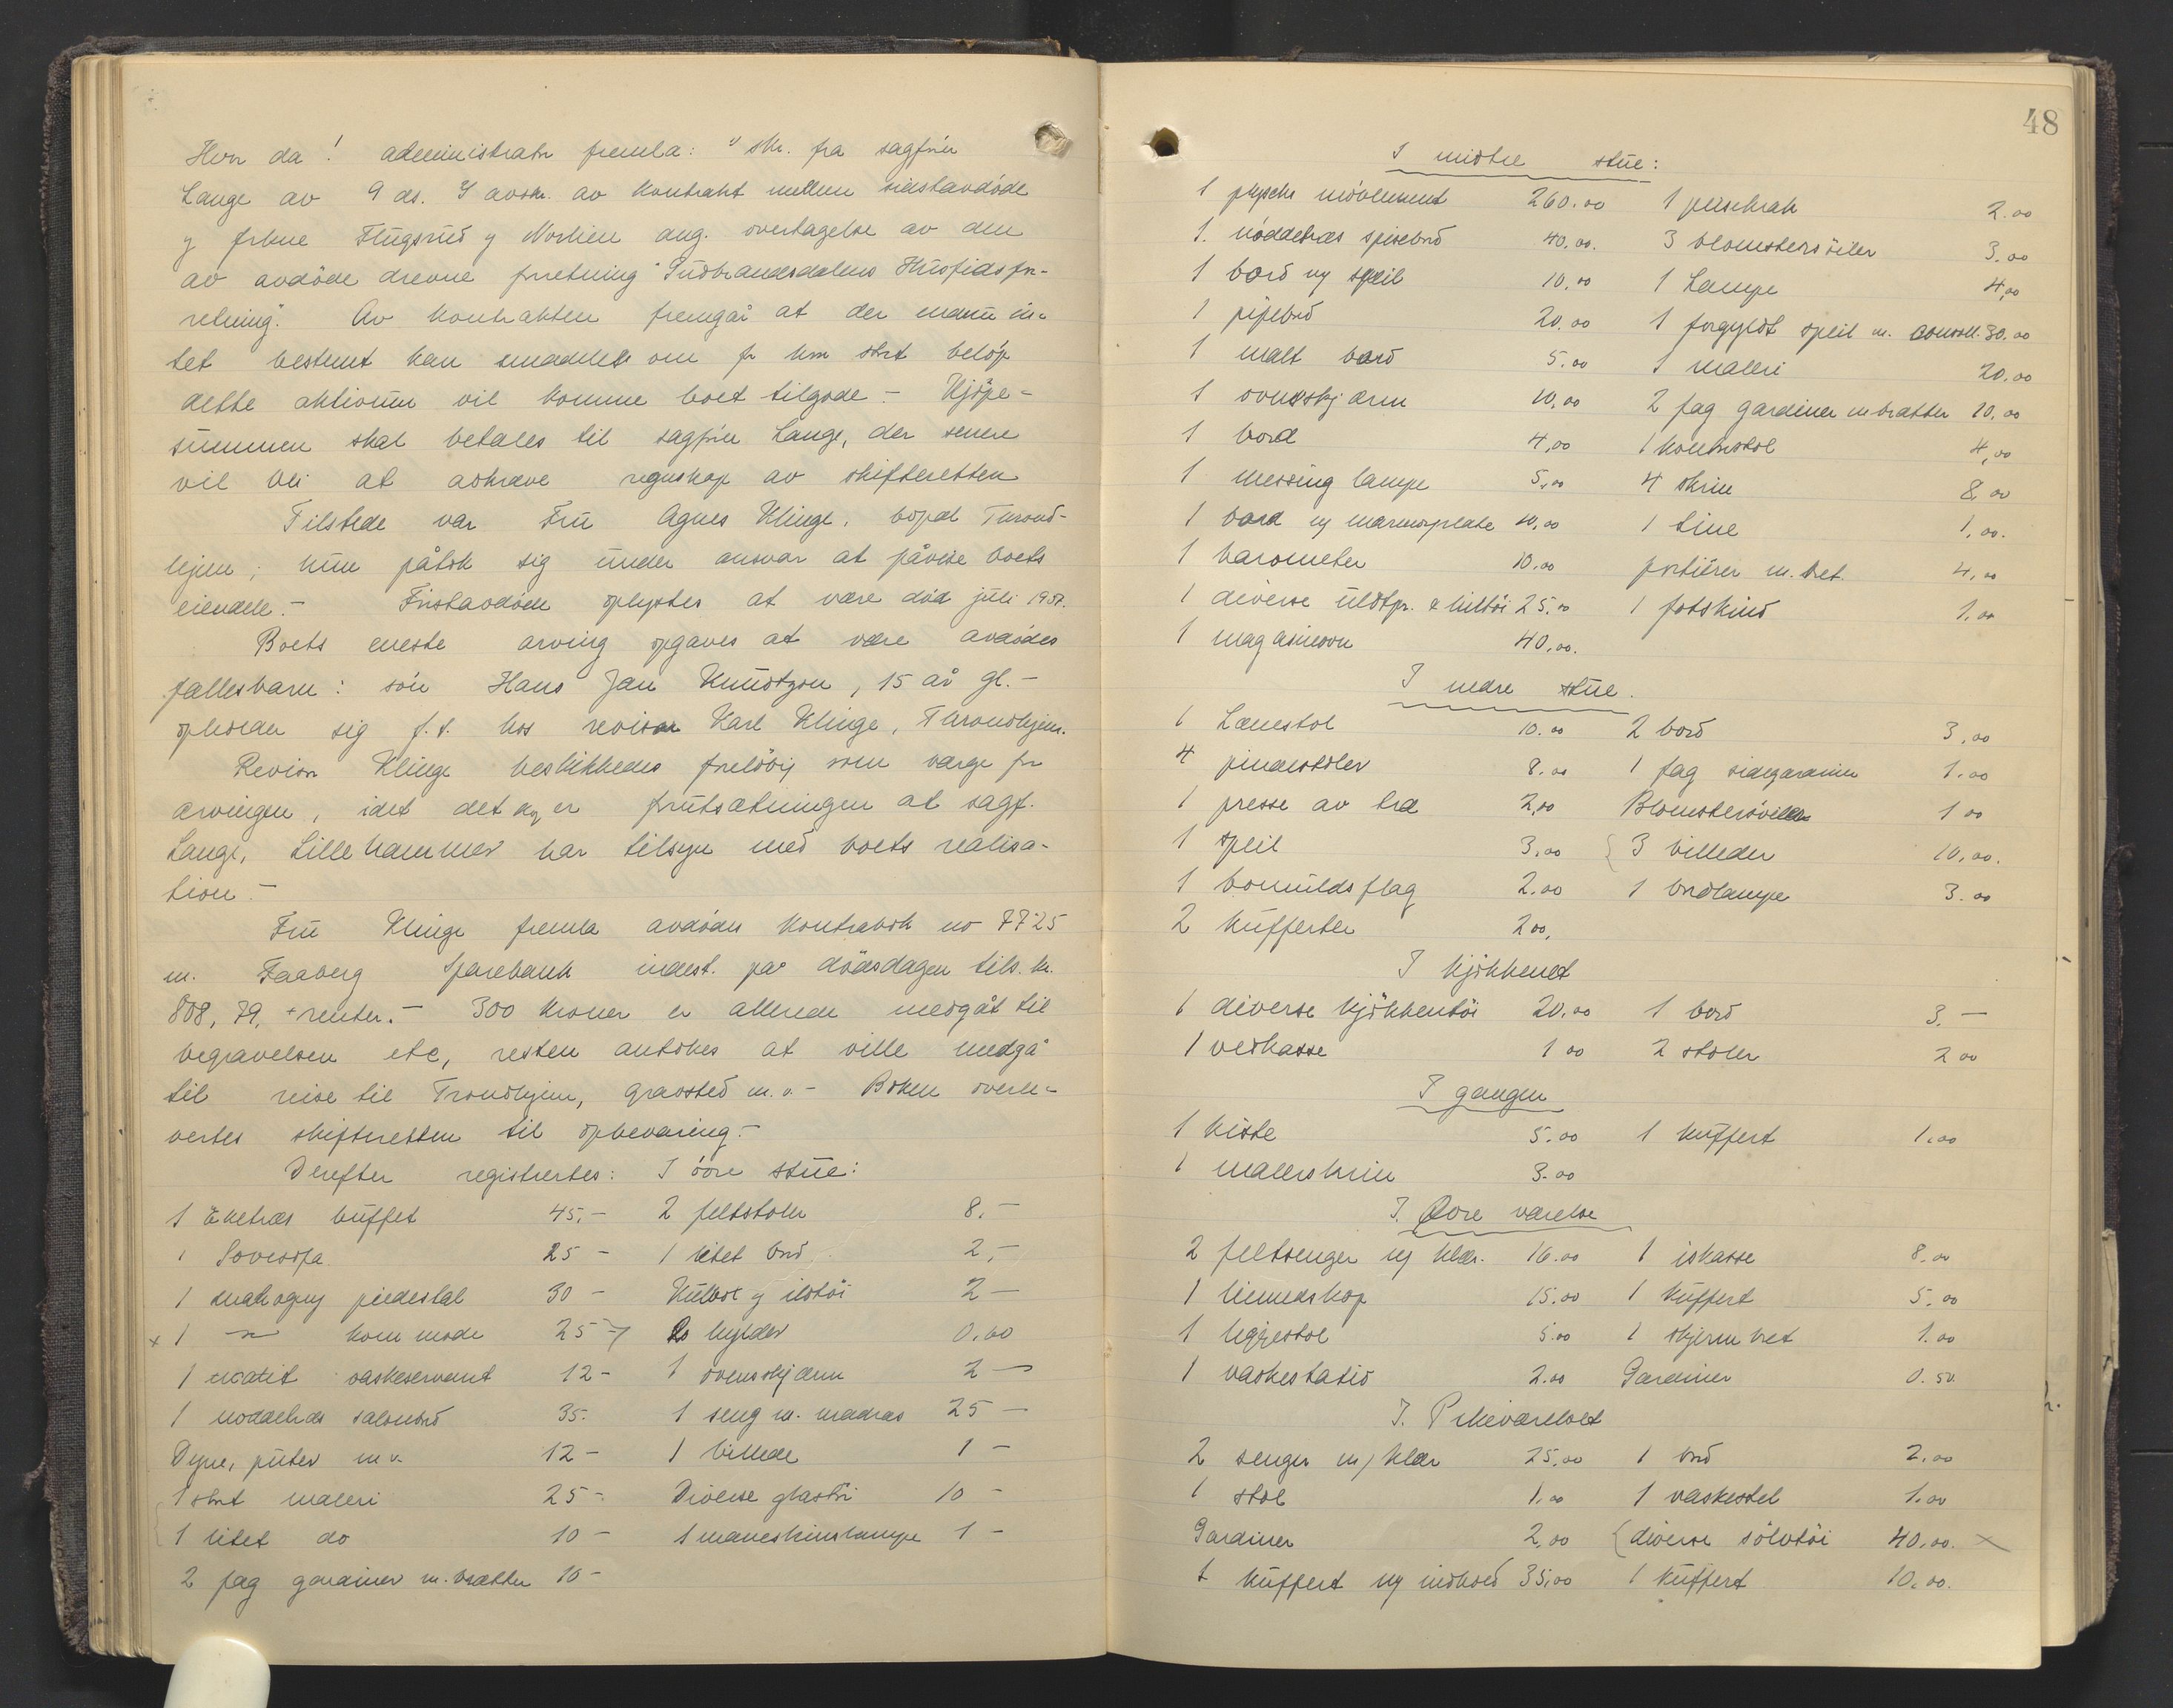 Hvor da! administrator fremla: 1 skr. fra sagfører
Lange av 9 ds. 2 avskr. av kontrakt mellem sidstavdøde
og frkne Flugsrud og Norlien ang. overtagelse av den
av avdøde drevne forretning "Gudbrandsdalens Husflidsfor-
retning". Av kontrakten fremgår at der endnu in-
tet bestemt kan om for hvor stort beløp
dette aktivum vil komme boet tilgode. - Kjøpe-
summen skal betales til sagfører Lange, der senere
vil bli at avkræve regnskap av skifteretten
Tilstede var Fru Agnes Klinge, bopæl Trond-
hjem; hun påtok sig under ansvar at påvise boets
eiendele. - Førstavdøde oplystes at være død juli 1907.
Boets eneste arving opgaves at være avdødes
fællesbarn: søn Hans Jan Knudtzon, 15 år gl. -
opholder sig f.t. hos revisor Karl Klinge, Throndhjem.
Revisor Klinge beskikkedes foreløbig som værge for
arvingen, idet det og er forutsætningen at sagf.
Lange, Lillehammer har tilsyn med boets realisa-
tion -
Fru Klinge fremla avdødes kontrabok no 7725
m. Faaberg Sparebank indest. på dødsdagen tils. kr.
808,79, + renter. - 300 kroner er allerede medgåt til
begravelsen etc, resten antokes at ville medgå
til reise til Trondhjem, gravsted m.v. - Boken overle-
vertes skifteretten til opbevaring. -
Derefter registrertes: I øvre stue:
1 Eketræs buffet 45,- 2 feltstoler 8.-
1 Sovesofa 25 - 1 litet bord 2,-
1 mahogny piedestal 30 - Kulboks og ildtøi 2 -
x 1 -"- kommode 25 - hylder 0.60
1 vaskeservant 12 - 1 ovnsskjærm 2 -
1 nøddetræs salonbord 35. 1 seng m. madras 25 -
Dyne, puter m.v. 12 - 1 billede 1 -
1 stort maleri 25 - Diverse glastøi 10 -
1 litet do 10 - 1 maneskinslampe 1 -
2 fag gardiner m. brætter 10 -
48
I midtre stue:
1 plyschs møblement 260.00 1 2.00
1 nøddetræs spisebord 40.00. 3 blomstersøiler 3.00
1 bord og speil 10.00 1 Lampe 4,00
1 pipebord 20.00 1 forgyldt speil m. consoll 30.00
1 malt bord 5.00 1 maleri 20.00
1 ovnsskjærm 10,00 2 fag gardiner m brætter 10,00
1 bord 4,00 1 kontorstol 4,00
1 messing lampe 5,00 4 skrin 8.00
1 bord og marmorplate 10,00 1 tine 1,00.
1 barometer 10.00 portiérer m. bret. 4,00
1 diverse uldtpr. & hultøi 25.00 1 fotskind 1.00
1 magasinovn 40,00.
I nedre stue.
1 Lænestol 10.00 2 bord 3,00
4 pindestoler 8.00 1 fag sidegardiner 1.00
1 presse av træ 2,00 Blomstersøiler 1 00
1 speil 3,00 3 billeder 10,00.
1 bomuldsflag 2.00 1 bordlampe 3.00
2 kufferter 2 00,
I kjøkkenet
1 diverse kjøkkentøi 20.00 1 bord 3. -
1 vedkasse 1 00 2 stoler 2 00
I gangen
1 kiste 5.00 1 kuffert 1.00
1 malerskrin 3.00
I. Øvre værelse
2 feltsenger og klær. 16.00 1 iskasse 8.00
1 linnedskap 15.00 1 kuffert 5.00
1 liggestol 5.00 1 skjermbret 1.00
1 vaskestativ 2.00 Gardiner 0.50.
I. Pikeværelset
2 senger m/ klær 25.00 1 bord 2.00
1 stol 1.00 1 vaskestel 1.00
Gardiner 2,00 diverse sølvtøi 40,00. x
1 kuffert og indhold 35,00 1 kuffert 10,00.